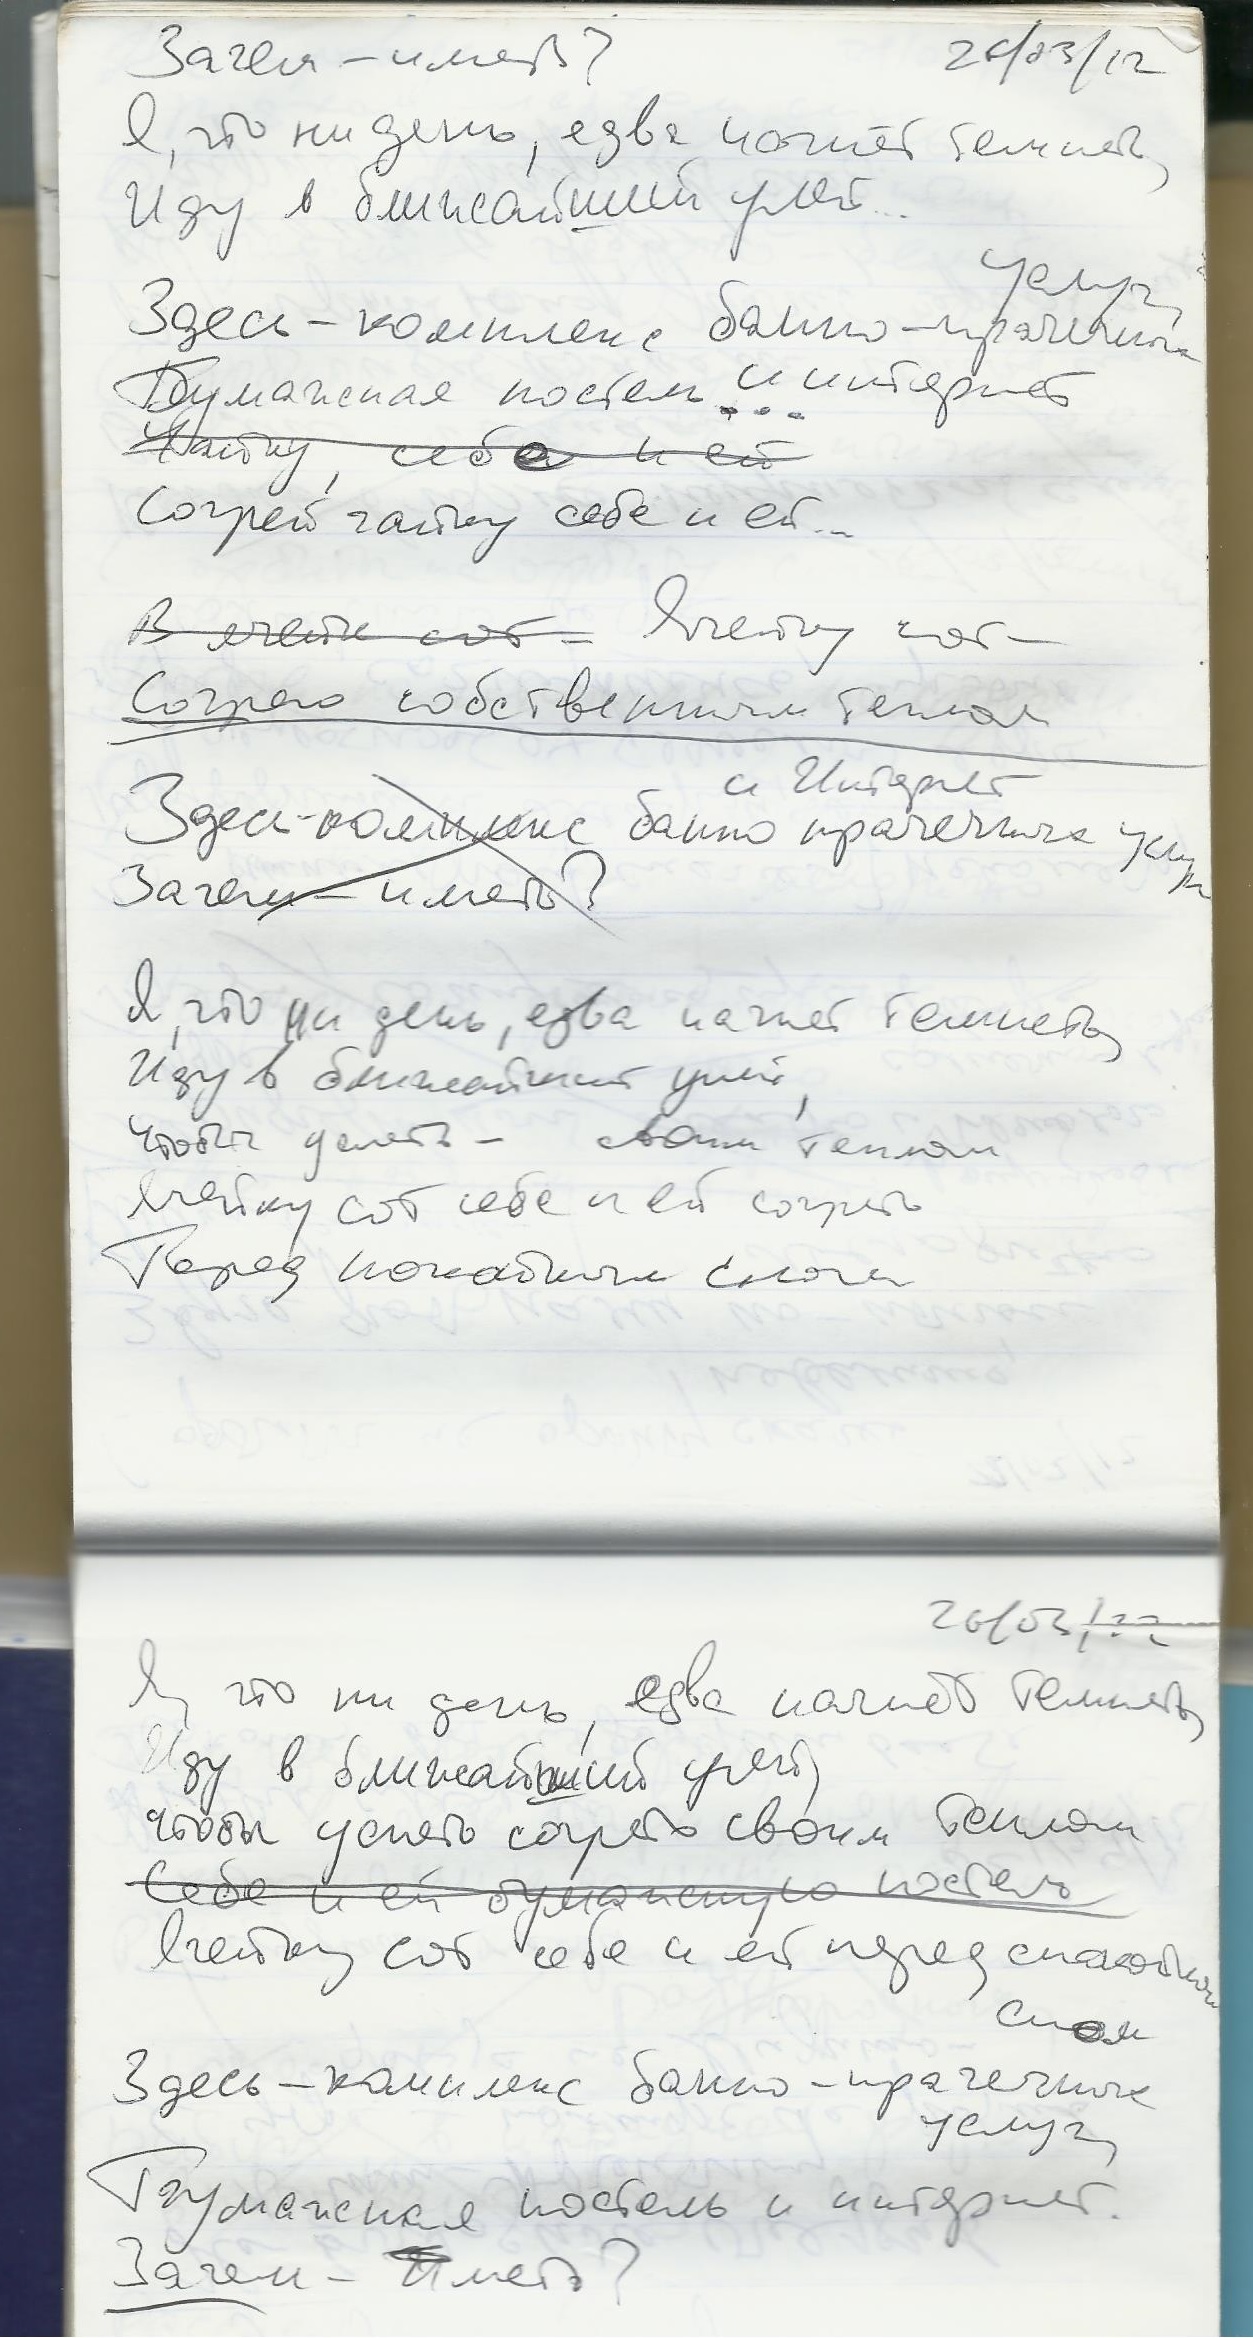 Зачем – иметь?
26/03/12
Я, что ни день, едва начнёт темнеть,
Иду в ближайший улей...
Здесь – комплекс банно-прачечных
услуг,
Бумажная постель и интернет
Чайку, себе и ей
Согрей чайку себе и ей...
В ячейке сот – Ячейку сот –
Согрею собственным теплом
и Интернет
Здесь – комплекс банно прачечных услуг
Зачем – иметь?
Я, что ни день, едва начнет темнеть,
Иду в ближайший улей,
Чтобы успеть – своим теплом
Ячейку сот себе и ей согреть
Перед спокойным сном
26/03
Я, что ни день, едва начнет темнеть,
Иду в ближайший улей,
Чтобы успеть согреть своим теплом
Себе и ей бумажную постель
Ячейку сот себе и ей перед спокойным
сном
Здесь – комплекс банно-прачечных
услуг,
Бумажная постель и интернет.
Зачем – Иметь?